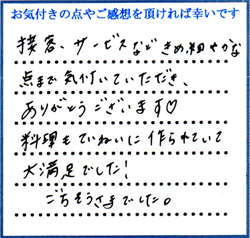 お気付きの点やご感想を頂ければ幸いです
接客、サービスなどきめ細やかな
点まで気付いていただき、
ありがとうございます♡
料理もていねいに作られていて
大満足でした!
ごちそうさまでした。